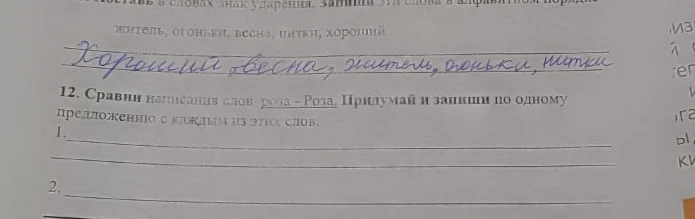 Поставь в словах знак ударения. Запиши эти слова в алфавитном порядке
житель, огоньки, весна, нитки, хороший
Хороший, весна, житель, огоньки, нитки
12. Сравни написания слов роза - Роза. Придумай и запиши по одному
предложению с каждым из этих слов.
1.
2.